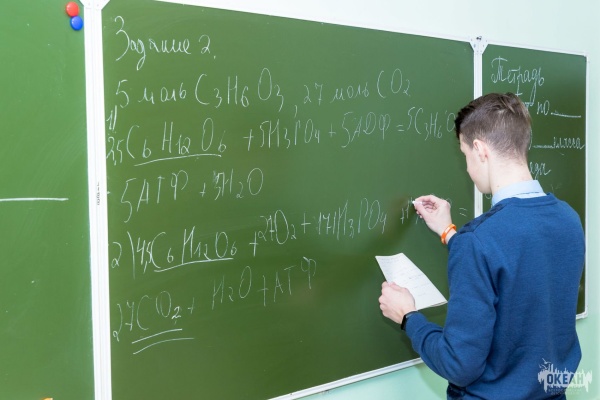 Задание 2.
5 моль C3H6O3, 27 моль CO2
1)
2,5 C6H12O6 + 5H3PO4 + 5АДФ = 5C3H6O
5АТФ + 5H2O
2) 4,5C6H12O6 + 27O2 + 171H3PO4 + =
27CO2 + H2O + АТФ
Тетрадь
по
класса
ОКЕАН